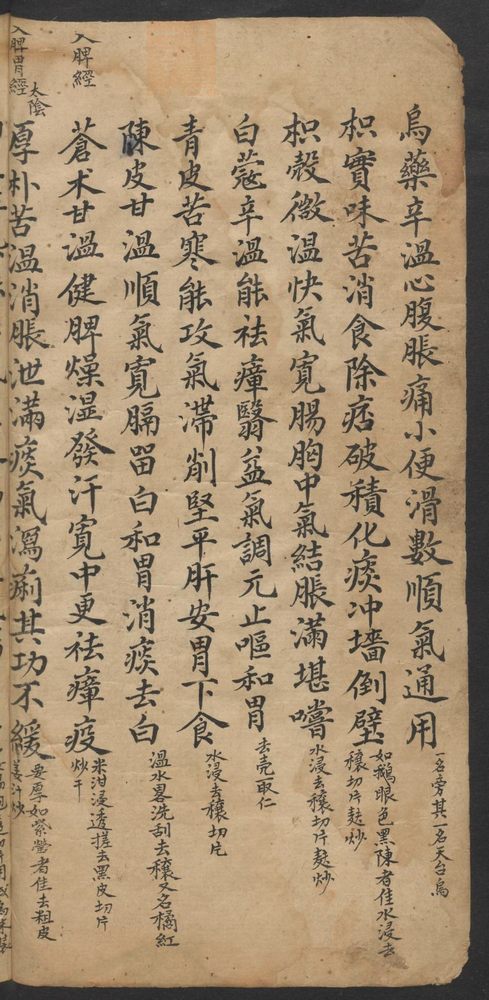 烏藥辛溫心腹脹痛小便滑數順氣通用 一名旁其一名天台烏
枳實味苦消食除痞破積化痰冲墻倒壁 如鵝眼色黑陳者佳水浸去穰切片麩炒
枳殼微溫快氣寬腸胸中氣結脹滿堪嚐 水浸去穰切片麩炒
白蔻辛溫能祛瘴翳益氣調元止嘔和胃 去壳取仁
青皮苦寒能攻氣滯削堅平肝安胃下食 水浸去穰切片
陳皮甘溫順氣寬膈留白和胃消痰去白 溫水畧洗刮去穰又名橘紅
入脾經
蒼术甘溫健脾燥湿發汗寬中更祛瘴疫 米泔浸透搓去黑皮切片炒干
入脾胃經
太陰
厚朴苦溫消脹泄滿痰氣瀉痢其功不緩 要厚如紫瑩者佳去粗皮姜汁炒